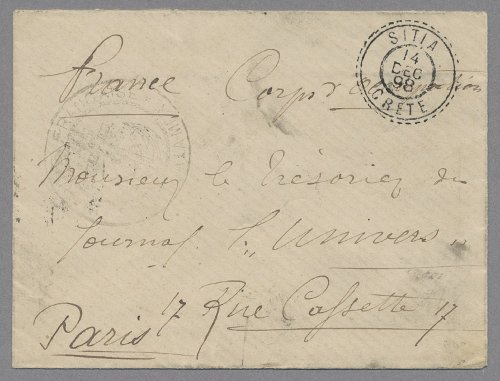 SITIA
14
DEC
98
CRETE
France Corps d'occupation
Monsieur le Trésorier du
Journal "L'Univers"
17 Rue Cassette 17
Paris